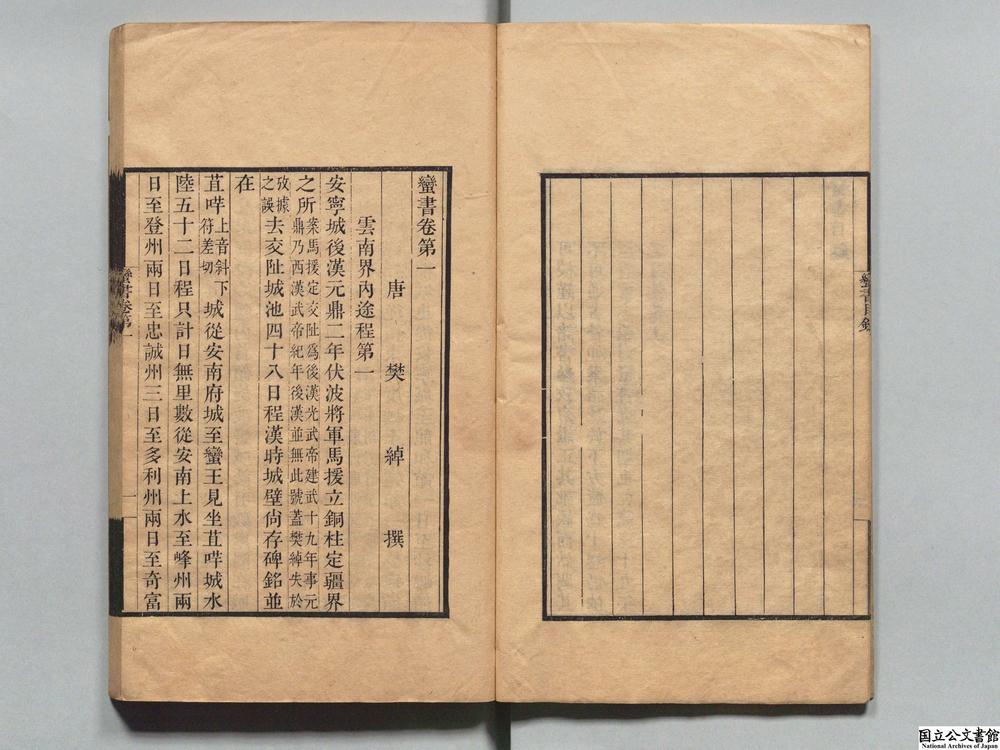 蠻書目錄
蠻書卷第一
唐 樊 綽 撰
雲南界內途程第一
安寧城後漢元鼎二年伏波將軍馬援立銅柱定疆界
之所案馬援定交阯爲後漢光武帝建武十九年事元
鼎乃西漢武帝紀年後漢並無此號蓋樊綽失於
攷據
之誤去交阯城池四十八日程漢時城壁尙存碑銘並
在
苴哶上音斜下
符差切城從安南府城至蠻王見坐苴哶城水
陸五十二日程只計日無里數從安南上水至峰州兩
日至登州兩日至忠誠州三日至多利州兩日至奇富
蠻書卷第一
一
国立公文書館
National Archives of Japan